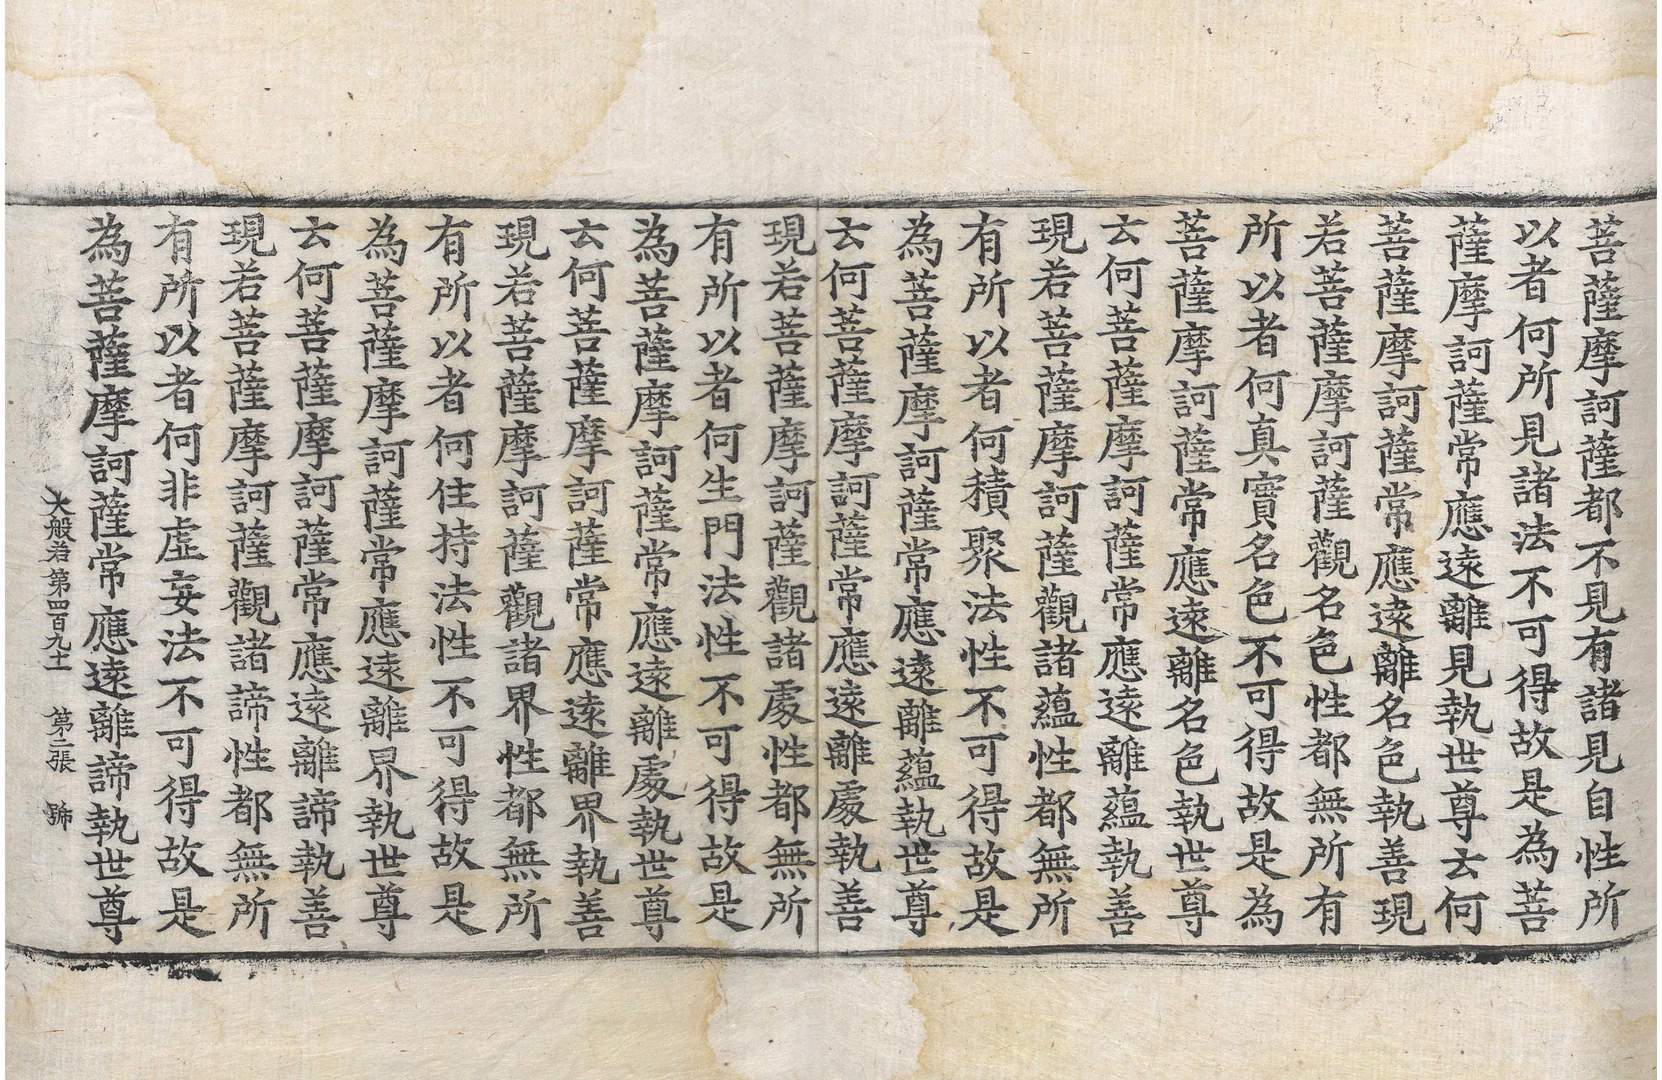 菩薩摩訶薩都不見有諸見自性所
以者何所見諸法不可得故是為菩
薩摩訶薩常應遠離見執世尊云何
菩薩摩訶薩常應遠離名色執善現
若菩薩摩訶薩觀名色性都無所有
所以者何真實名色不可得故是為
菩薩摩訶薩常應遠離名色執世尊
云何菩薩摩訶薩常應遠離蘊執善
現若菩薩摩訶薩觀諸蘊性都無所
有所以者何積聚法性不可得故是
為菩薩摩訶薩常應遠離蘊執世尊
云何菩薩摩訶薩常應遠離處執善
現若菩薩摩訶薩觀諸處性都無所
有所以者何生門法性不可得故是
為菩薩摩訶薩常應遠離處執世尊
云何菩薩摩訶薩常應遠離界執善
現若菩薩摩訶薩觀諸界性都無所
有所以者何住持法性不可得故是
為菩薩摩訶薩常應遠離界執世尊
云何菩薩摩訶薩常應遠離諦執善
現若菩薩摩訶薩觀諸諦性都無所
有所以者何非虛妄法不可得故是
為菩薩摩訶薩常應遠離諦執世尊
大般若第四百九十 第二張 號